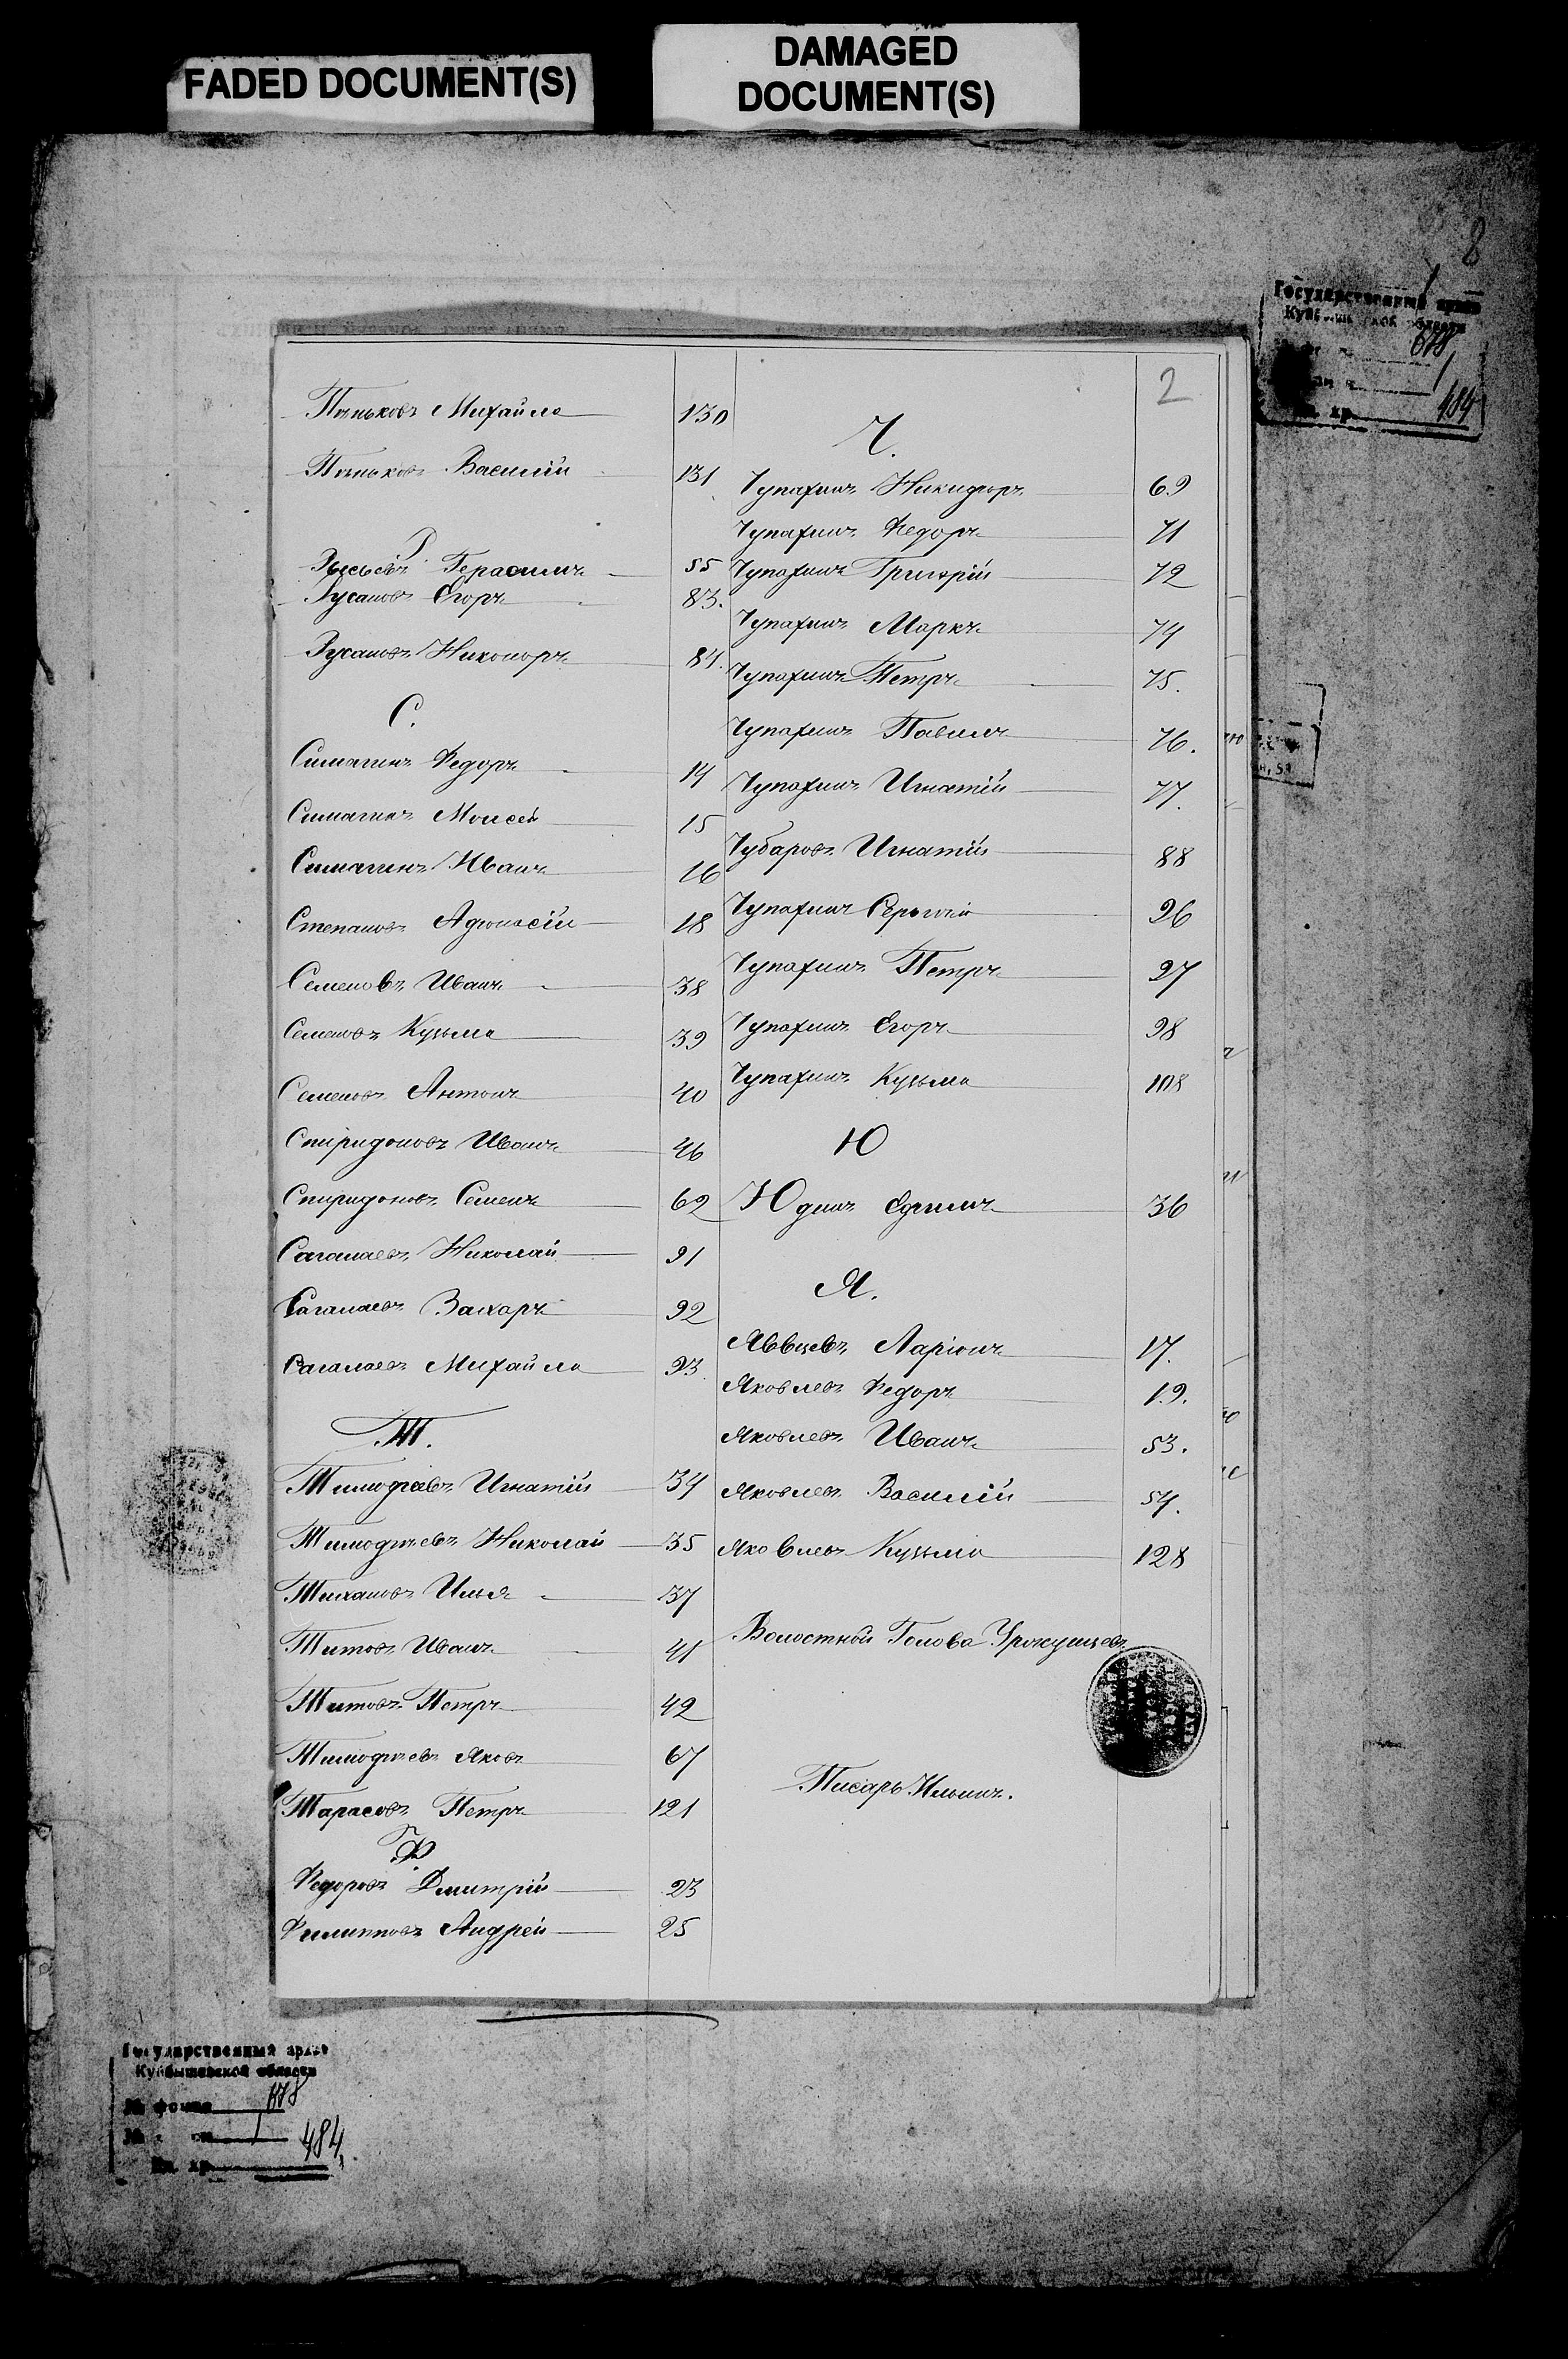 FADED DOCUMENT(S)
DAMAGED
DOCUMENT(S)
8
Государственный архив
Куйбышевской области
678
1
484
2
Пеньковъ Михайла 130
Пеньковъ Василій 131
Р
Рысьевъ Герасимъ 55
Русановъ Егоръ 83.
Русановъ Никоноръ 84.
С.
Симагинъ Федоръ 14
Симагинъ Моисей 15
Симагинъ Иванъ 16
Степановъ Афонасій 18
Семеновъ Иванъ 38
Семеновъ Кузьма 39
Семеновъ Антонъ 40
Спиридоновъ Иванъ 46
Спиридоновъ Семенъ 62
Сагалаевъ Николай 91
Сагалаевъ Захаръ 92
Сагалаевъ Михайла 93.
Т.
Тимофѣевъ Игнатій 34
Тимофѣевъ Николай 35
Тихановъ Илья 37
Титовъ Иванъ 41
Титовъ Петръ 42
Тимофѣевъ Яковъ 67
Тарасовъ Петръ 121
Ф.
Федоровъ Дмитрій 23
Филипповъ Андрей 25
Ч.
Чупахинъ Никифоръ 69
Чупахинъ Федоръ 71
Чупахинъ Григорій 72
Чупахинъ Маркъ 74
Чупахинъ Петръ 75.
Чупахинъ Павилъ 76.
Чупахинъ Игнатій 77.
Чубаровъ Игнатій 88
Чупахинъ Сергѣй 96
Чупахинъ Петръ 97
Чупахинъ Егоръ 98
Чупахинъ Кузьма 108
Ю
Юдинъ Ефимъ 36
Я.
Ларіонъ 17.
Яковлевъ Федоръ 19.
Яковлевъ Иванъ 53.
Яковлевъ Василій 54.
Яковлевъ Кузьма 128
Волостной Голова
Писарь Ильинъ.
Государственный архив
Куйбышевской области
№ фонда 678
1
484